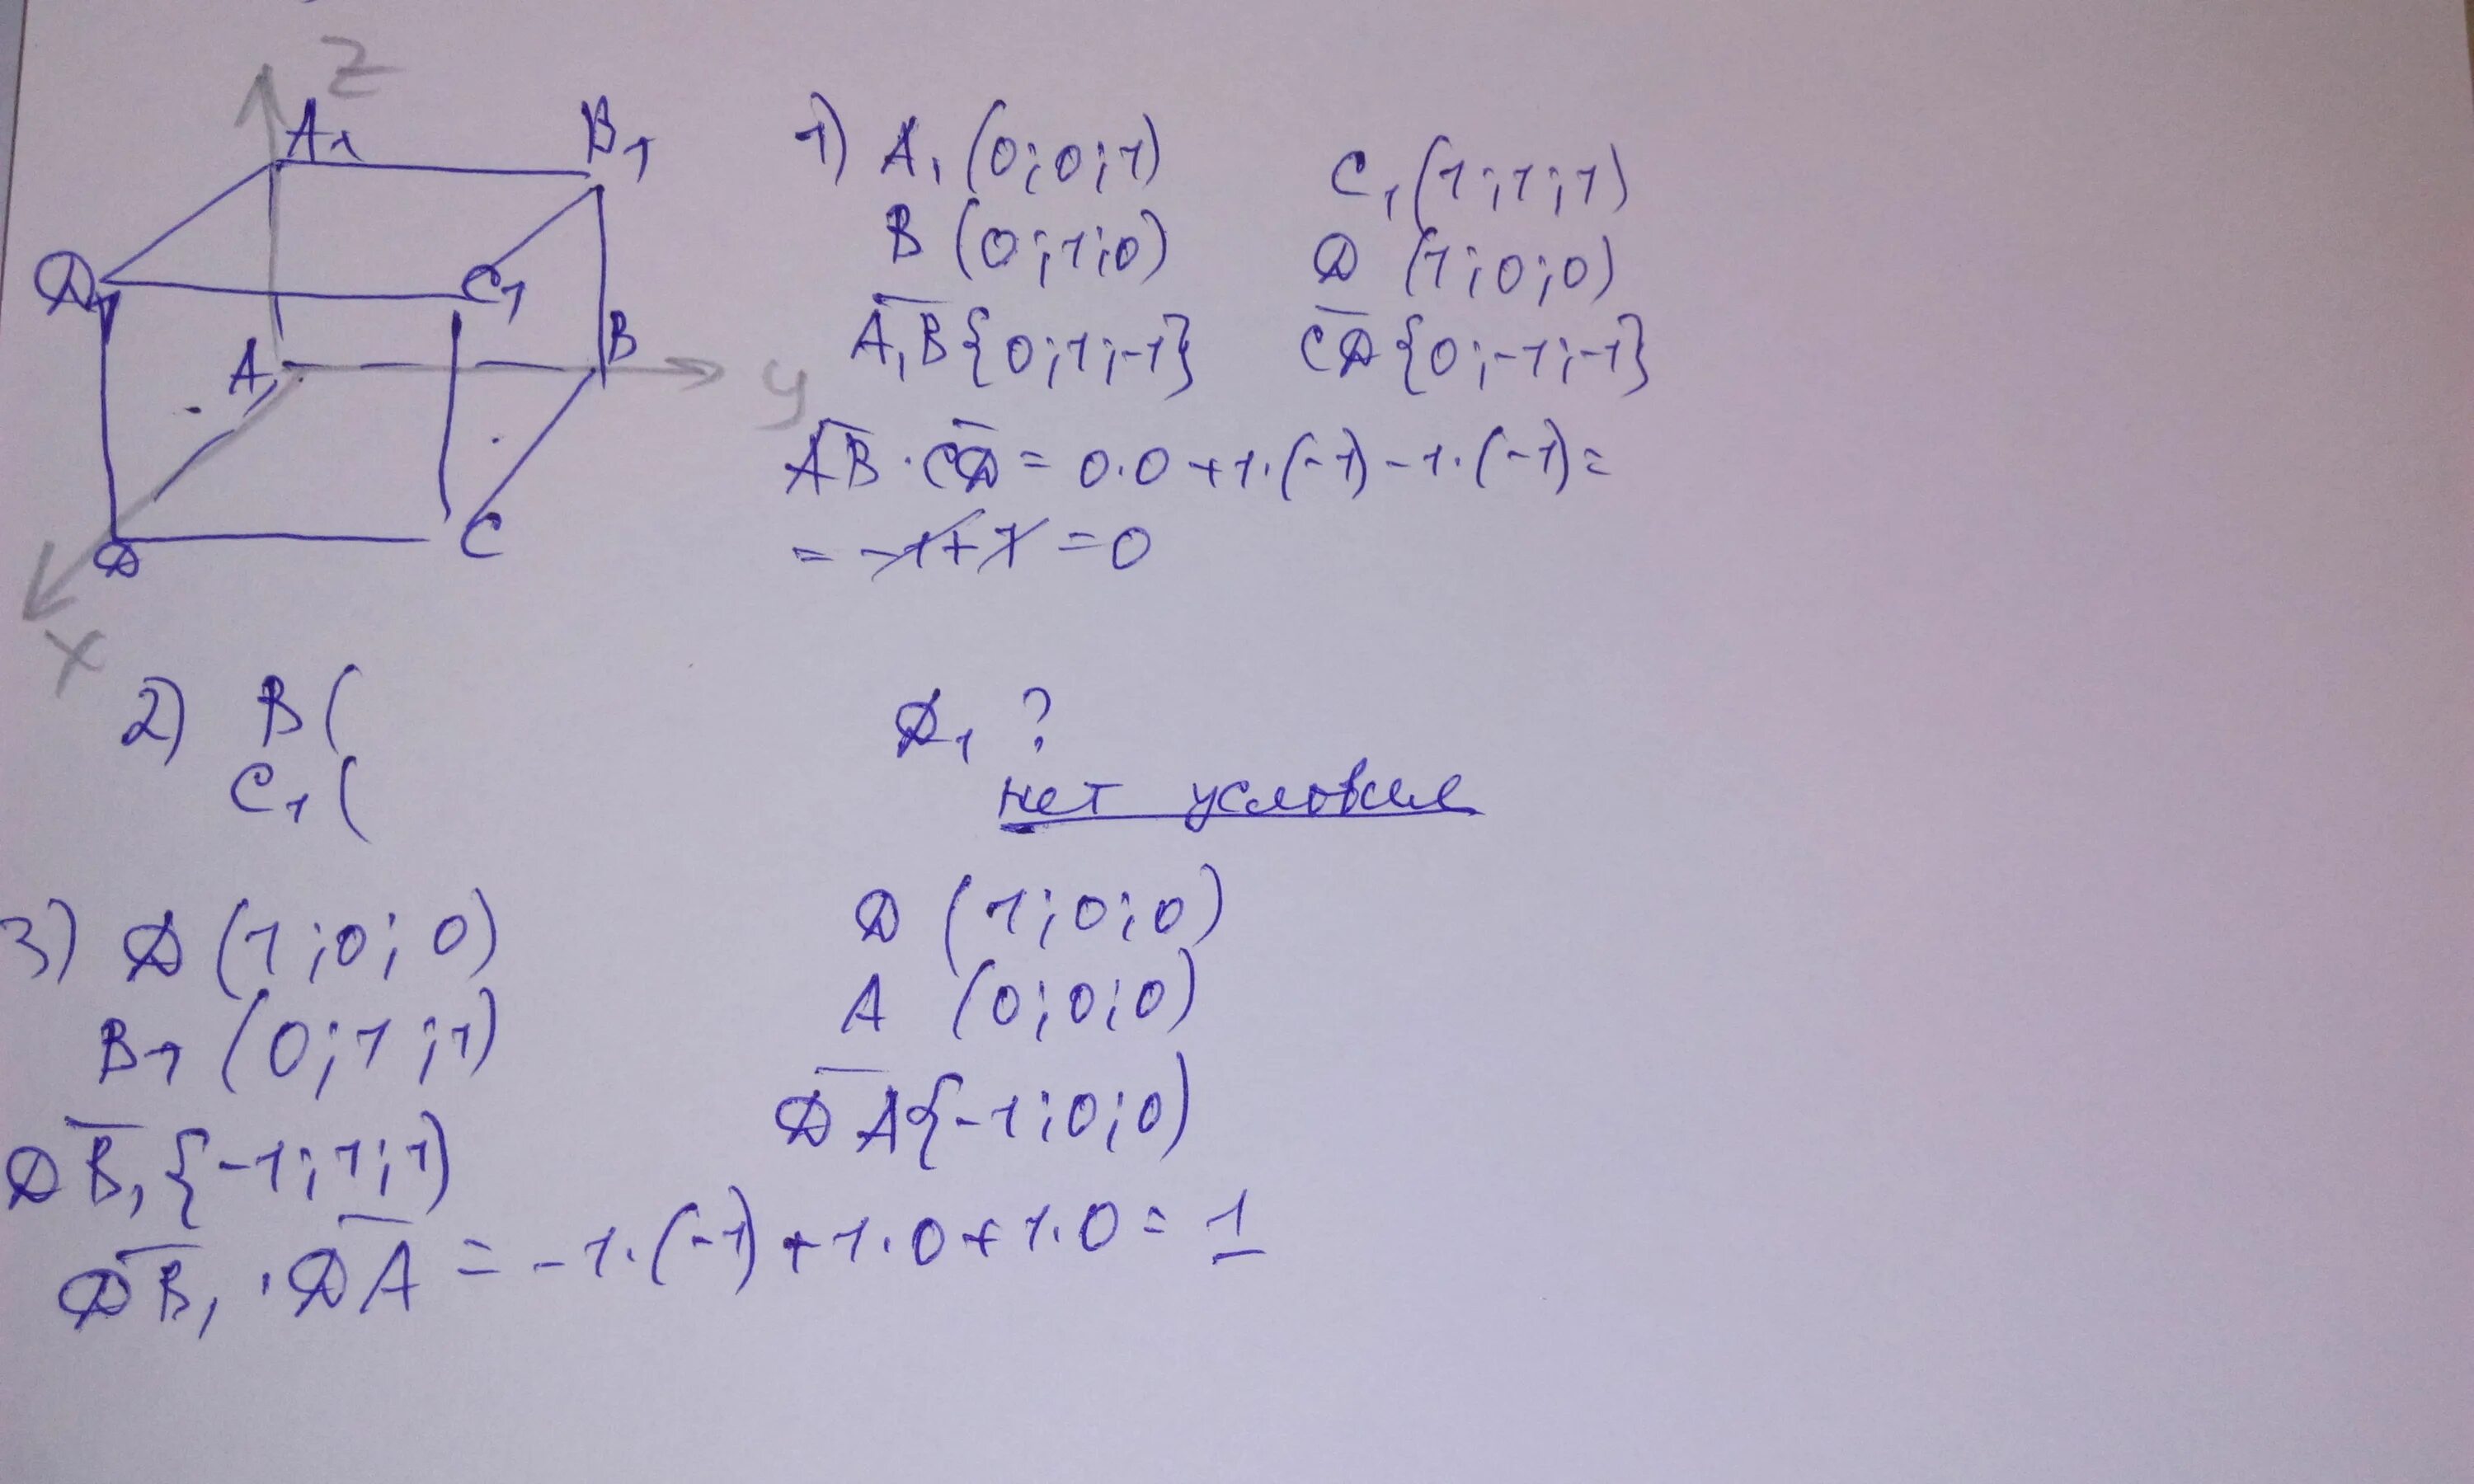 Z
A₁
B₁
D₁
C₁
A
B
y
D
C
x
1) A₁ (0;0;1)
B (0;1;0)
A₁B{0;1;-1}
C₁(1;1;1)
D (1;0;0)
CD{0;-1;-1}
AB · CD = 0·0+1·(-1)-1·(-1)=
= -1+1 = 0
2) B(
C₁(
D₁ ?
нет условие
3) D (1;0;0)
B₁ (0;1;1)
DB₁{-1;1;1)
D (1;0;0)
A (0;0;0)
DA{-1;0;0)
DB₁ · DA = -1·(-1)+1·0+1·0= 1